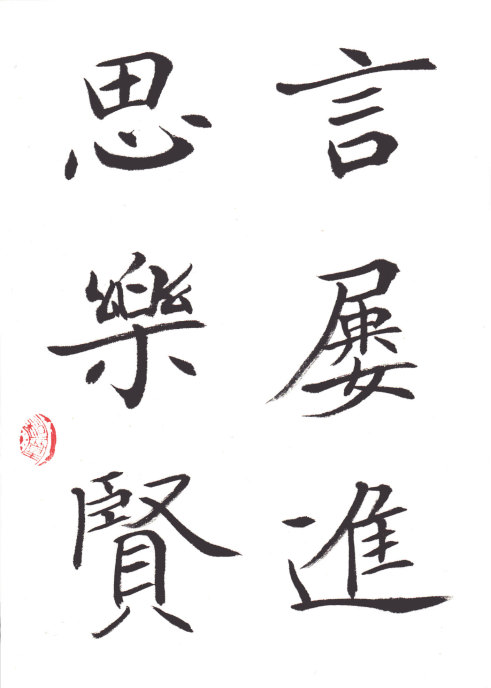 言屢進
思樂賢